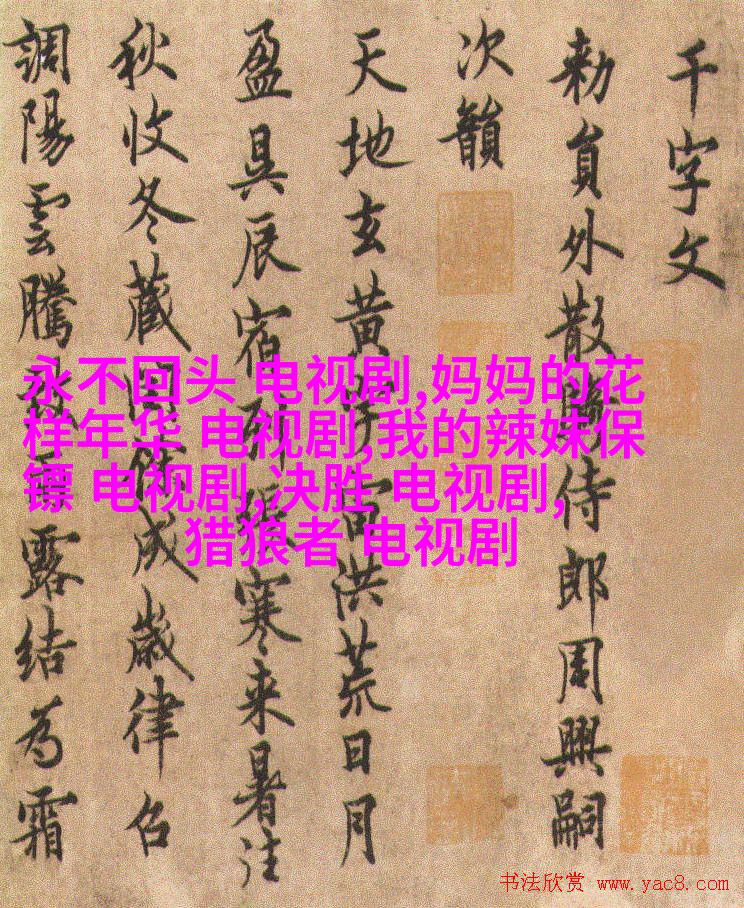 千字文
勑員外散騎侍郎周興嗣
次韻
天地玄黃宇宙洪荒日月
盈昃辰宿列張寒来暑往
秋收冬藏閏餘成歲律召
調陽雲騰致雨露結為霜
永不回头 电视剧,妈妈的花
样年华 电视剧,我的辣妹保
镖 电视剧,决胜 电视剧,
猎狼者 电视剧
书法欣赏 www.yac8.com